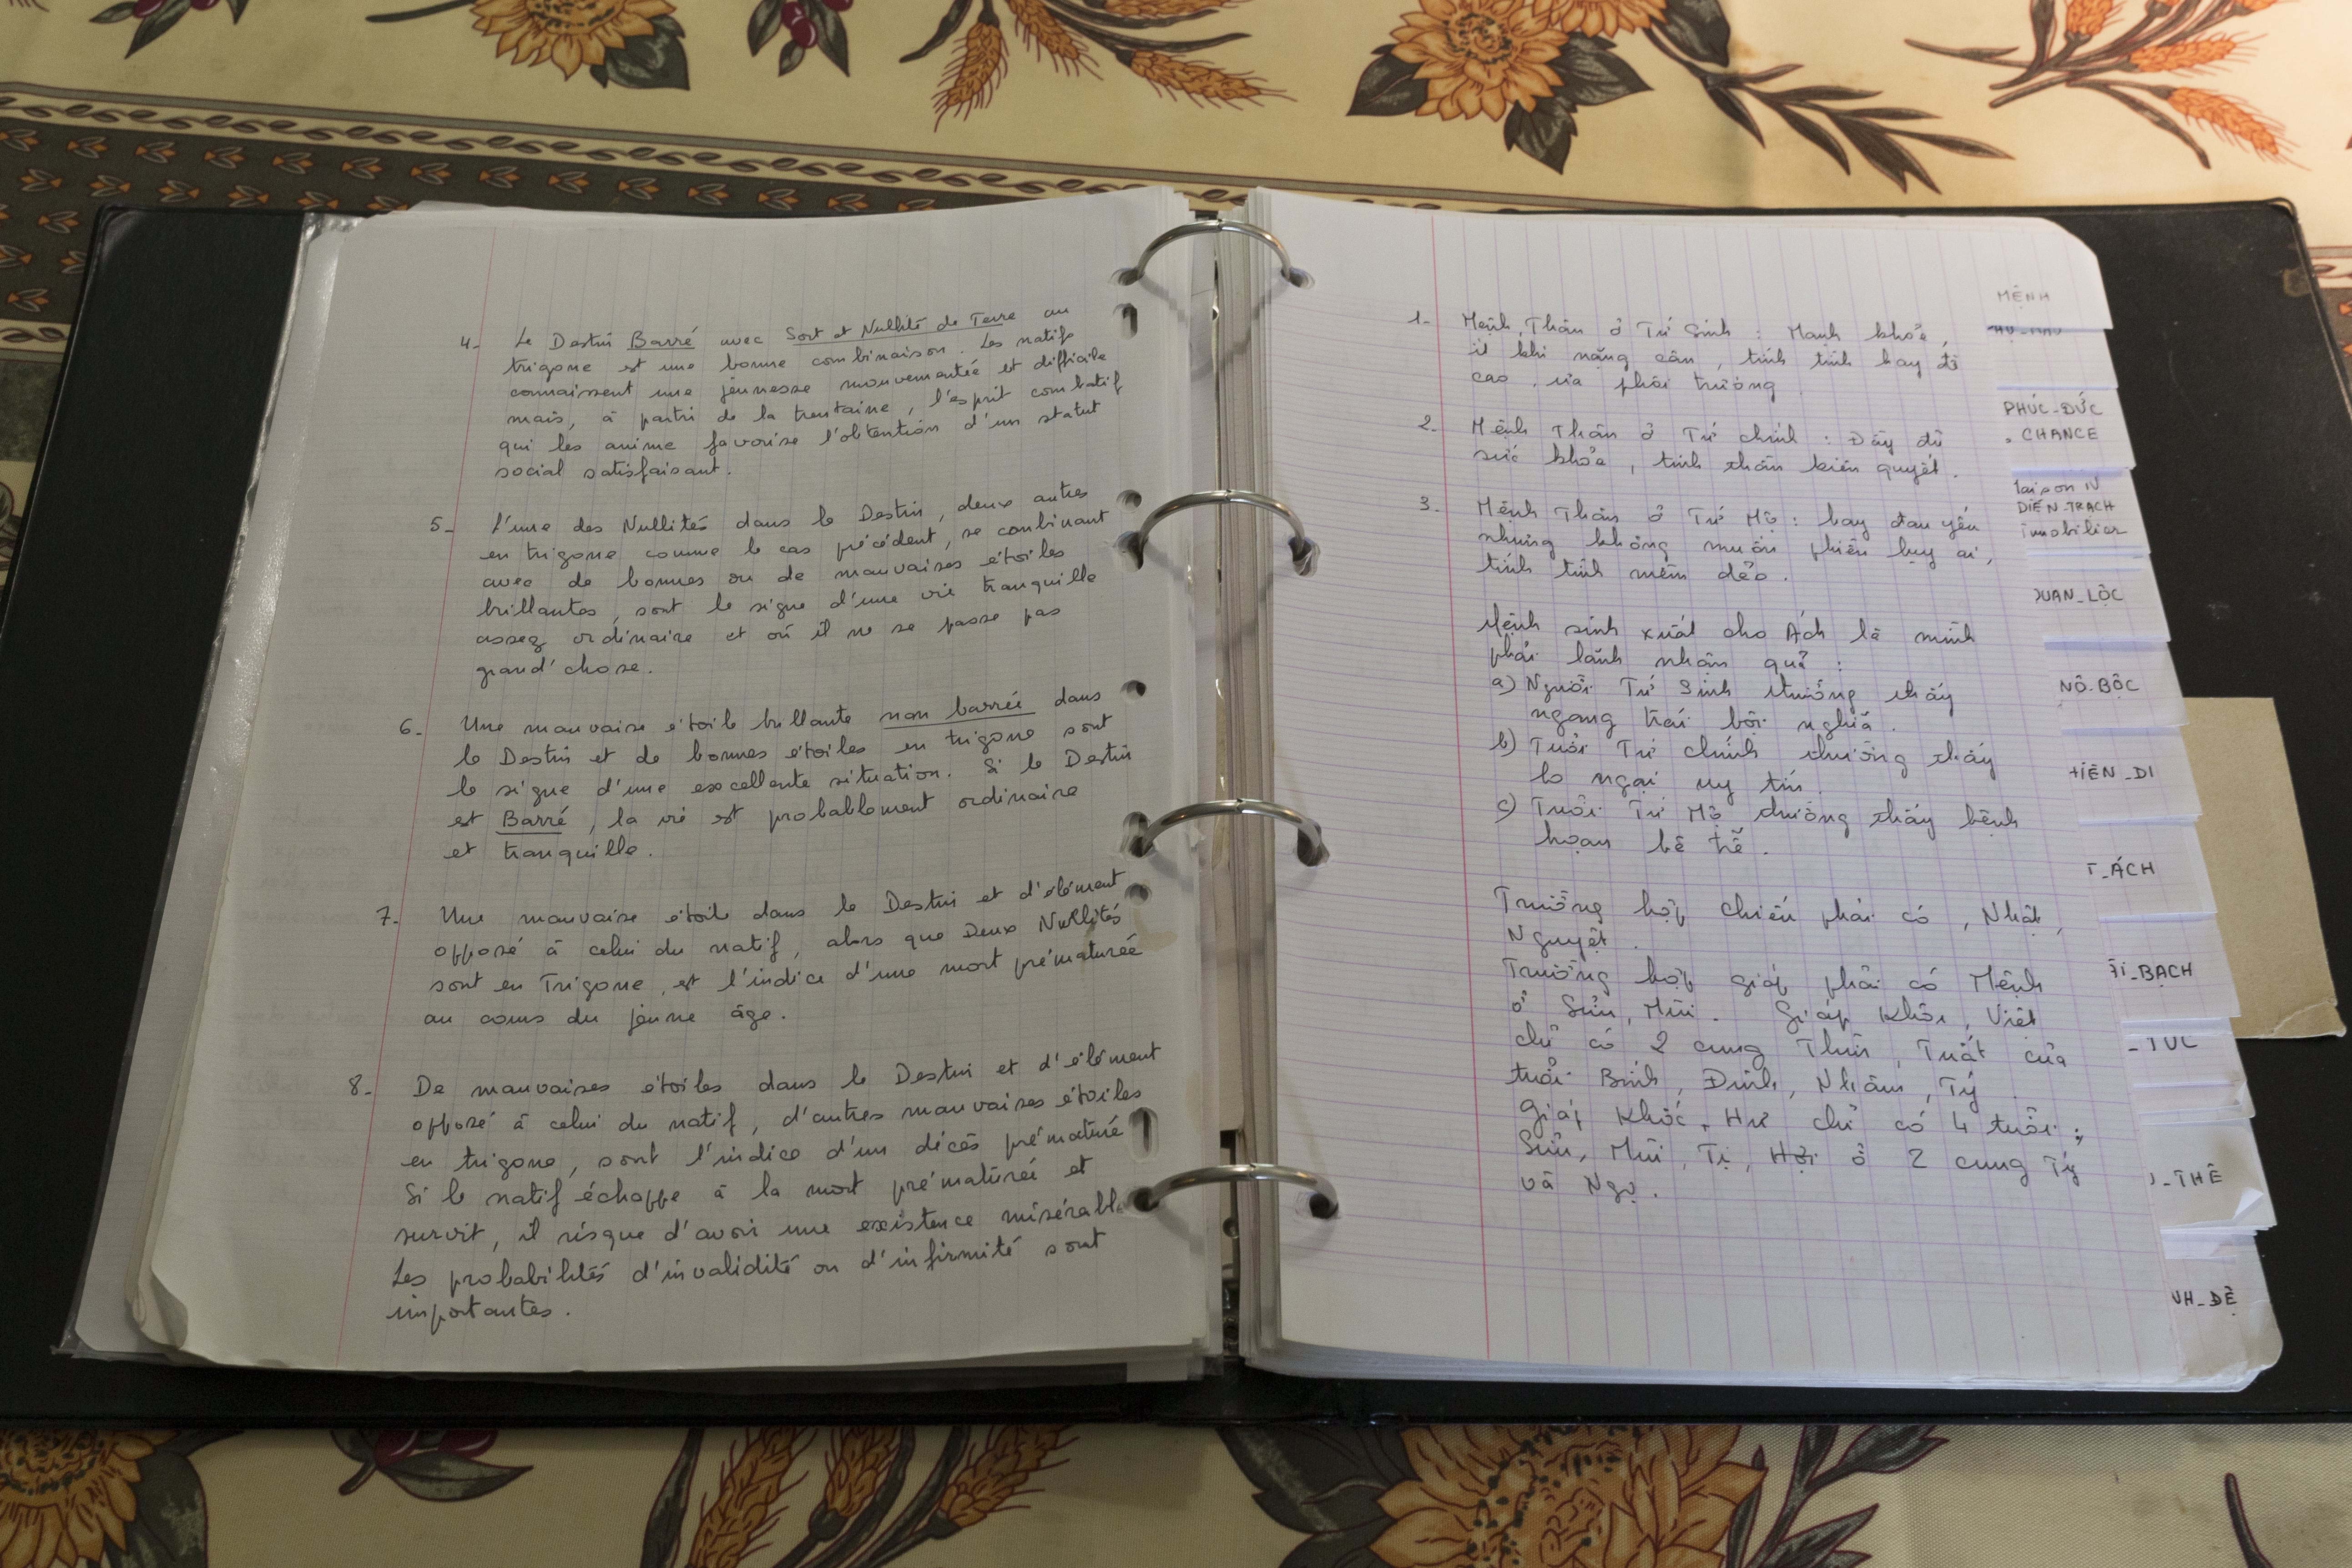 4- Le Destin Barré avec Sort et Nullité de Terre au
trigone est une bonne combinaison. Les natifs
connaissent une jeunesse mouvementée et difficile
mais, à partir de la trentaine, l'esprit combatif
qui les anime favorise l'obtention d'un statut
social satisfaisant.
5- L'une des Nullités dans le Destin, deux autres
en trigone comme le cas précédent, se combinant
avec de bonnes ou de mauvaises étoiles
brillantes, sont le signe d'une vie tranquille
assez ordinaire et où il ne se passe pas
grand'chose.
6- Une mauvaise étoile brillante non barrée dans
le Destin et de bonnes étoiles en trigone sont
le signe d'une excellente situation. Si le Destin
est Barré, la vie est probablement ordinaire
et tranquille.
7- Une mauvaise étoile dans le Destin et d'élément
opposé à celui du natif, alors que Deux Nullités
sont en Trigone, est l'indice d'une mort prématurée
au cours du jeune âge.
8- De mauvaises étoiles dans le Destin et d'élément
opposé à celui du natif, d'autres mauvaises étoiles
en trigone, sont l'indice d'un décès prématuré
Si le natif échappe à la mort prématurée et
survit, il risque d'avoir une existence misérable
Les probabilités d'invalidité ou d'infirmité sont
importantes.
1- Mệnh, Thân ở Tứ Sinh : Mạnh khỏe,
ít khi nặng cân, tính tình hay đề
cao, ưa phô trương
2- Mệnh Thân ở Tứ chính : Đầy đủ
sức khỏe, tinh thần kiên quyết.
3- Mệnh Thân ở Tứ Mộ : hay đau yếu
nhưng không muốn phiền lụy ai,
tính tình mềm dẻo.
Mệnh sinh xuất cho Ách là mình
phải lãnh nhận quả :
a) Người Tứ Sinh thường thấy
ngang trái bội nghĩa.
b) Tuổi Tứ chính thường thấy
lo ngại uy tín.
c) Tuổi Tứ Mộ thường thấy bệnh
hoạn bê trễ.
Trường hợp chiếu phải có, Nhật,
Nguyệt.
Trường hợp giáp phải có Mệnh
ở Sửu, Mùi. Giáp Khôi, Việt
chỉ có 2 cung Thìn, Tuất của
tuổi Bính, Đinh, Nhâm, Tý
Giáp Khốc, Hư chỉ có 4 tuổi :
Sửu, Mùi, Tị, Hợi ở 2 cung Tý
và Ngọ.
MỆNH
PHÚC_ĐỨC
. CHANCE
DIỀN_TRẠCH
immobilier
QUAN_LỘC
NÔ_BỘC
THIÊN_DI
T_ÁCH
ÀI_BẠCH
_TỨC
_THÊ
NH_ĐỆ